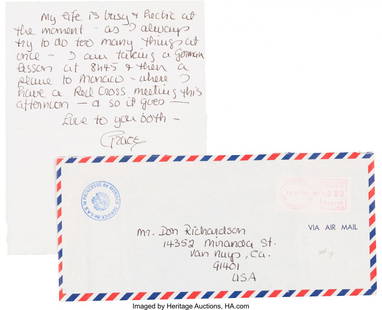 My life is busy & hectic at
the moment - as I always
try to do too many things at
once - I am taking a German
lesson at 8h45 & then a
plane to Monaco - where I
have a Red Cross meeting this
afternoon - & so it goes -
Love to you both -
Grace
VIA AIR MAIL
Mr. Don Richardson
14352 Miranda St.
Van Nuys, Ca.
91401
USA
Imaged by Heritage Auctions, HA.com